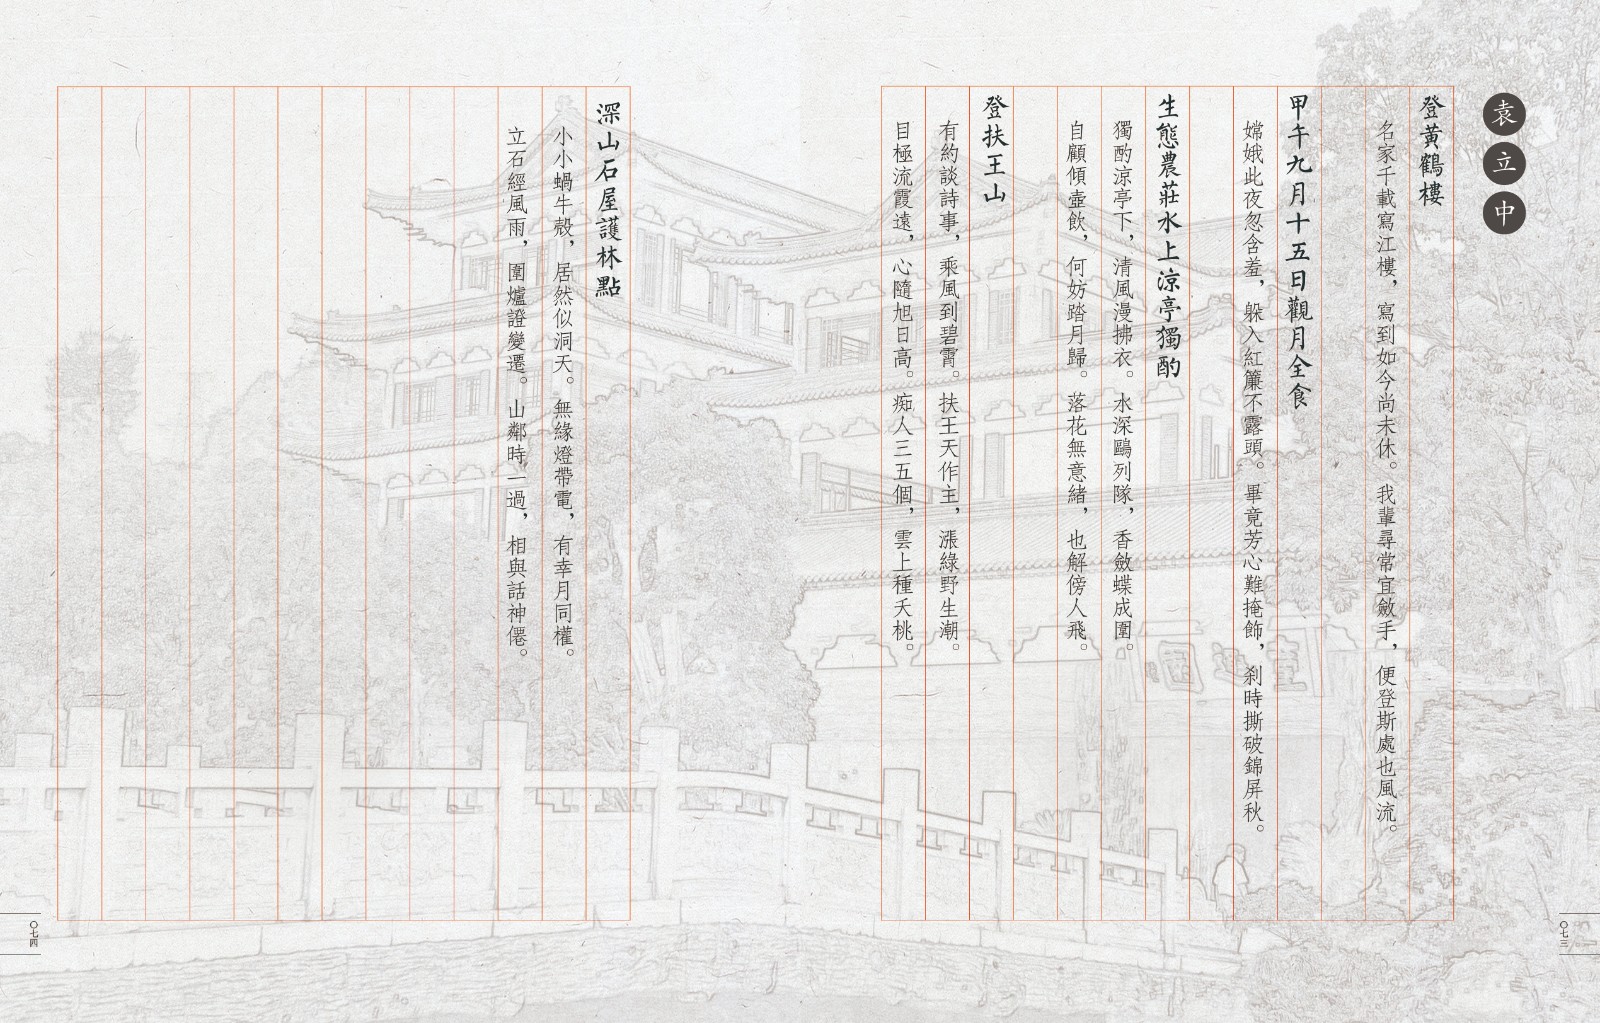 袁立中
登黃鶴樓
名家千載寫江樓，寫到如今尚未休。我輩尋常宜斂手，便登斯處也風流。
甲午九月十五日觀月全食
嫦娥此夜忽含羞，躲入紅簾不露頭。畢竟芳心難掩飾，刹時撕破錦屏秋。
生態農莊水上涼亭獨酌
獨酌涼亭下，清風漫拂衣。水深鷗列隊，香斂蝶成圍。
自顧傾壺飲，何妨踏月歸。落花無意緒，也解傍人飛。
登扶王山
有約談詩事，乘風到碧霄。扶王天作主，漲綠野生潮。
目極流霞遠，心隨旭日高。痴人三五個，雲上種夭桃。
〇七三
深山石屋護林點
小小蝸牛殼，居然似洞天。無緣燈帶電，有幸月同權。
立石經風雨，圍爐證變遷。山鄰時一過，相與話神僊。
〇七四